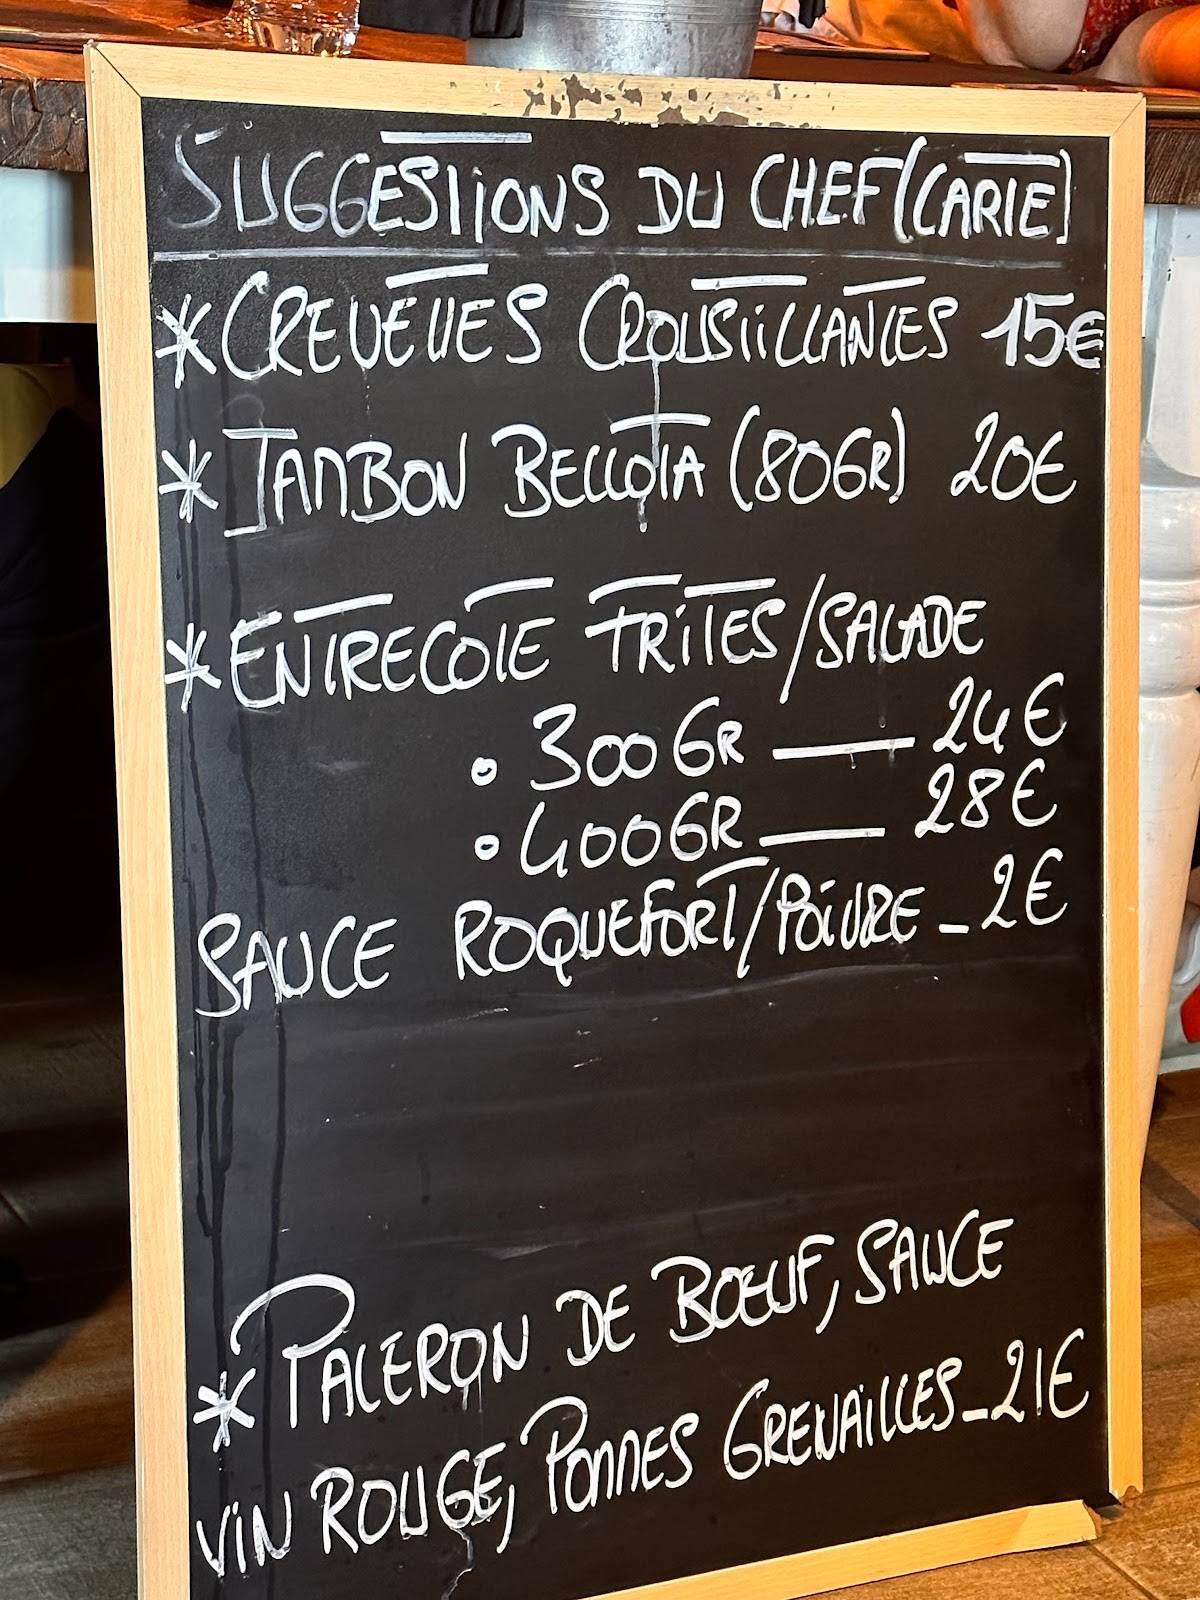 SUGGESTIONS DU CHEF (CARTE)
* CREVETTES CROUSTILLANTES 15€
* JAMBON BELLOTA (80GR) 20€
* ENTRECOTE FRITES/SALADE
• 300GR — 24€
• 400GR — 28€
SAUCE ROQUEFORT/POIVRE - 2€
* PALERON DE BOEUF, SAUCE
VIN ROUGE, POMMES GRENAILLES - 21€